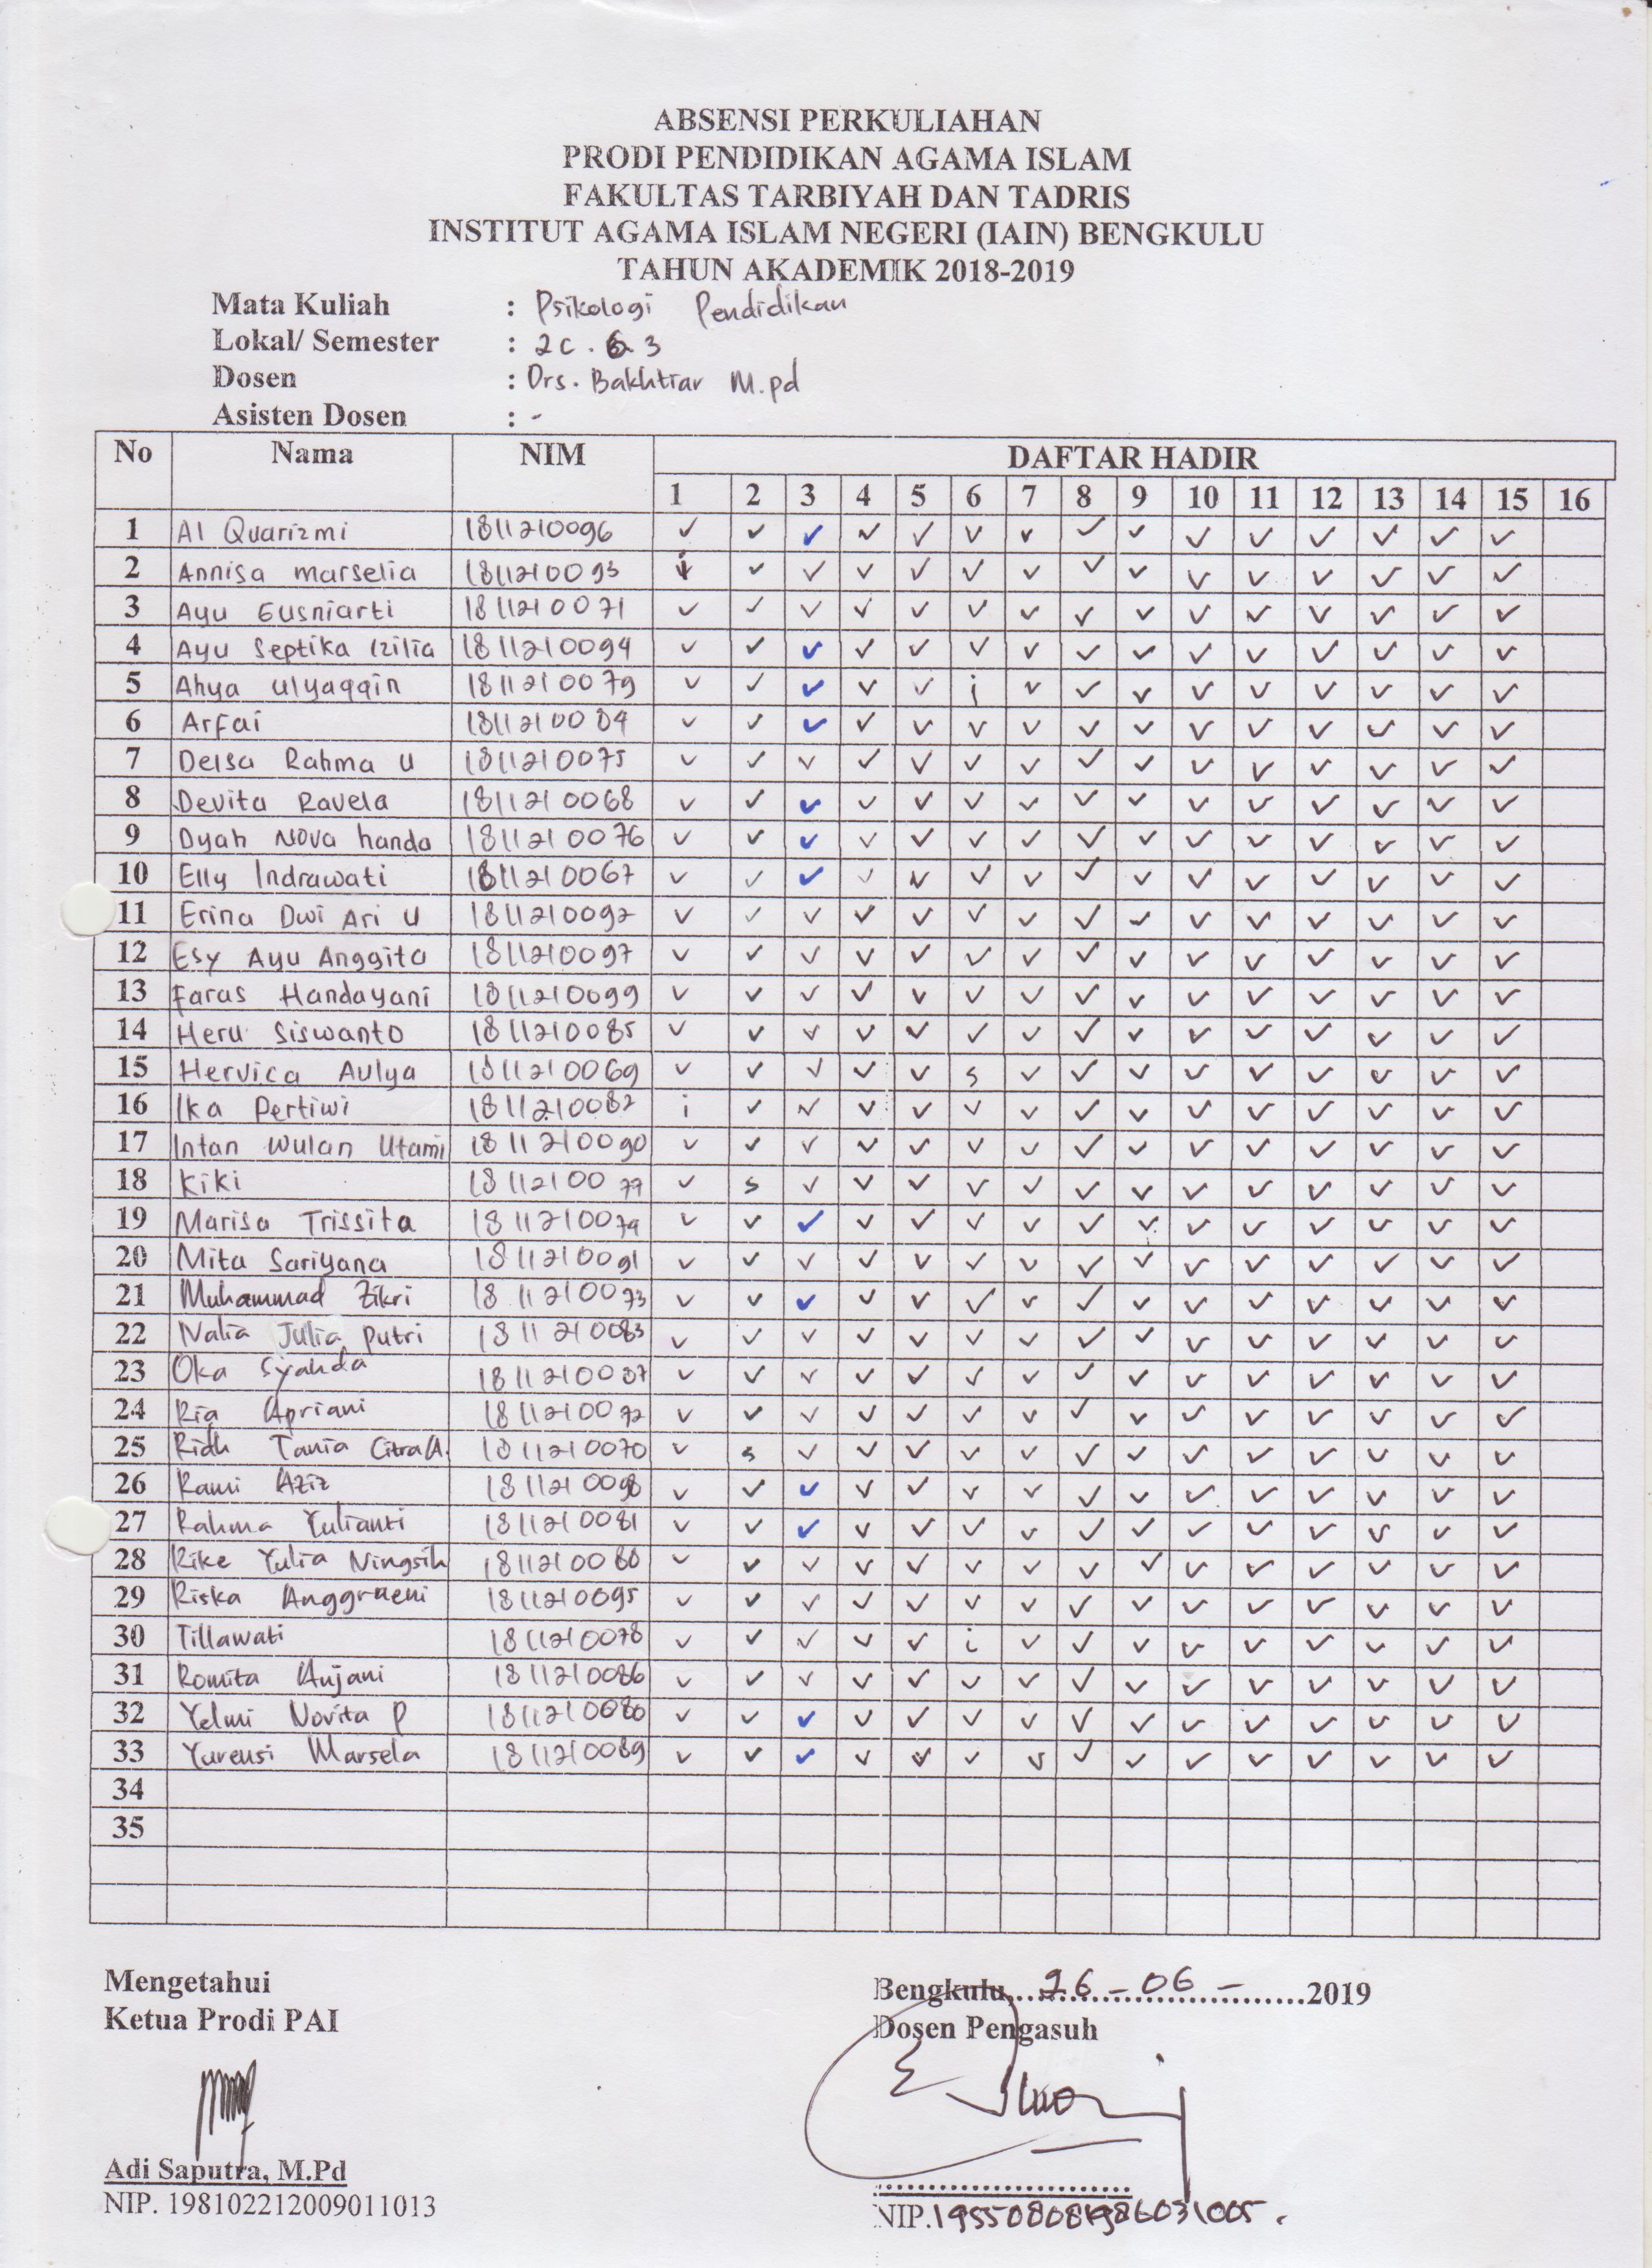 ABSENSI PERKULIAHAN
PRODI PENDIDIKAN AGAMA ISLAM
FAKULTAS TARBIYAH DAN TADRIS
INSTITUT AGAMA ISLAM NEGERI (IAIN) BENGKULU
TAHUN AKADEMIK 2018-2019
Mata Kuliah : Psikologi Pendidikan
Lokal/ Semester : 2C. 3
Dosen : Drs. Bakhtiar M.pd
Asisten Dosen : -
No Nama NIM DAFTAR HADIR
1 2 3 4 5 6 7 8 9 10 11 12 13 14 15 16
1 Al Quarizmi 1811210096 ✓ ✓ ✓ ✓ ✓ ✓ ✓ ✓ ✓ ✓ ✓ ✓ ✓ ✓ ✓
2 Annisa marselia 1811210093 ✓ ✓ ✓ ✓ ✓ ✓ ✓ ✓ ✓ ✓ ✓ ✓ ✓ ✓
3 Ayu Gusniarti 1811210071 ✓ ✓ ✓ ✓ ✓ ✓ ✓ ✓ ✓ ✓ ✓ ✓ ✓ ✓ ✓
4 Ayu Septika Izilia 1811210094 ✓ ✓ ✓ ✓ ✓ ✓ ✓ ✓ ✓ ✓ ✓ ✓ ✓ ✓ ✓
5 Ahya ulyaqqin 1811210079 ✓ ✓ ✓ ✓ ✓ i ✓ ✓ ✓ ✓ ✓ ✓ ✓ ✓ ✓
6 Arfai 1811210084 ✓ ✓ ✓ ✓ ✓ ✓ ✓ ✓ ✓ ✓ ✓ ✓ ✓ ✓ ✓
7 Delsa Rahma U 1811210075 ✓ ✓ ✓ ✓ ✓ ✓ ✓ ✓ ✓ ✓ ✓ ✓ ✓ ✓ ✓
8 Devita Ravela 1811210068 ✓ ✓ ✓ ✓ ✓ ✓ ✓ ✓ ✓ ✓ ✓ ✓ ✓ ✓ ✓
9 Dyah Nova handa 1811210076 ✓ ✓ ✓ ✓ ✓ ✓ ✓ ✓ ✓ ✓ ✓ ✓ ✓ ✓ ✓
10 Elly Indrawati 1811210067 ✓ ✓ ✓ ✓ ✓ ✓ ✓ ✓ ✓ ✓ ✓ ✓ ✓ ✓ ✓
11 Erina Dwi Ari U 1811210092 ✓ ✓ ✓ ✓ ✓ ✓ ✓ ✓ ✓ ✓ ✓ ✓ ✓ ✓ ✓
12 Esy Ayu Anggita 1811210097 ✓ ✓ ✓ ✓ ✓ ✓ ✓ ✓ ✓ ✓ ✓ ✓ ✓ ✓ ✓
13 Faras Handayani 1811210099 ✓ ✓ ✓ ✓ ✓ ✓ ✓ ✓ ✓ ✓ ✓ ✓ ✓ ✓ ✓
14 Heru Siswanto 1811210085 ✓ ✓ ✓ ✓ ✓ ✓ ✓ ✓ ✓ ✓ ✓ ✓ ✓ ✓ ✓
15 Hervica Aulya 1811210069 ✓ ✓ ✓ ✓ ✓ s ✓ ✓ ✓ ✓ ✓ ✓ ✓ ✓ ✓
16 Ika Pertiwi 1811210082 i ✓ ✓ ✓ ✓ ✓ ✓ ✓ ✓ ✓ ✓ ✓ ✓ ✓ ✓
17 Intan Wulan Utami 1811210090 ✓ ✓ ✓ ✓ ✓ ✓ ✓ ✓ ✓ ✓ ✓ ✓ ✓ ✓ ✓
18 Kiki 1811210077 ✓ s ✓ ✓ ✓ ✓ ✓ ✓ ✓ ✓ ✓ ✓ ✓ ✓ ✓
19 Marisa Trissita 1811210074 ✓ ✓ ✓ ✓ ✓ ✓ ✓ ✓ ✓ ✓ ✓ ✓ ✓ ✓ ✓
20 Mita Sariyana 1811210091 ✓ ✓ ✓ ✓ ✓ ✓ ✓ ✓ ✓ ✓ ✓ ✓ ✓ ✓ ✓
21 Muhammad Zikri 1811210073 ✓ ✓ ✓ ✓ ✓ ✓ ✓ ✓ ✓ ✓ ✓ ✓ ✓ ✓ ✓
22 Nalia Julia putri 1811210083 ✓ ✓ ✓ ✓ ✓ ✓ ✓ ✓ ✓ ✓ ✓ ✓ ✓ ✓ ✓
23 Oka Syahda 1811210087 ✓ ✓ ✓ ✓ ✓ ✓ ✓ ✓ ✓ ✓ ✓ ✓ ✓ ✓ ✓
24 Ria Apriani 1811210072 ✓ ✓ ✓ ✓ ✓ ✓ ✓ ✓ ✓ ✓ ✓ ✓ ✓ ✓ ✓
25 Ridh Tania Citra A. 1811210070 ✓ s ✓ ✓ ✓ ✓ ✓ ✓ ✓ ✓ ✓ ✓ ✓ ✓ ✓
26 Rami Aziz 1811210098 ✓ ✓ ✓ ✓ ✓ ✓ ✓ ✓ ✓ ✓ ✓ ✓ ✓ ✓ ✓
27 Rahma Yulianti 1811210081 ✓ ✓ ✓ ✓ ✓ ✓ ✓ ✓ ✓ ✓ ✓ ✓ ✓ ✓ ✓
28 Rike Yulia Ningsih 1811210088 ✓ ✓ ✓ ✓ ✓ ✓ ✓ ✓ ✓ ✓ ✓ ✓ ✓ ✓ ✓
29 Riska Anggraeni 1811210095 ✓ ✓ ✓ ✓ ✓ ✓ ✓ ✓ ✓ ✓ ✓ ✓ ✓ ✓ ✓
30 Tillawati 1811210078 ✓ ✓ ✓ ✓ ✓ i ✓ ✓ ✓ ✓ ✓ ✓ ✓ ✓ ✓
31 Romita Anjani 1811210086 ✓ ✓ ✓ ✓ ✓ ✓ ✓ ✓ ✓ ✓ ✓ ✓ ✓ ✓ ✓
32 Yelmi Novita P 1811210080 ✓ ✓ ✓ ✓ ✓ ✓ ✓ ✓ ✓ ✓ ✓ ✓ ✓ ✓ ✓
33 Yurensi Marsela 1811210089 ✓ ✓ ✓ ✓ ✓ ✓ ✓ ✓ ✓ ✓ ✓ ✓ ✓ ✓ ✓
34
35
Mengetahui
Ketua Prodi PAI
Adi Saputra, M.Pd
NIP. 198102212009011013
Bengkulu, 26-06-2019
Dosen Pengasuh
NIP.195508081986031005.